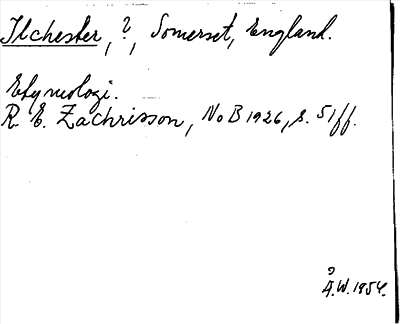 Ilchester, ?, Somerset, England.
Etymologi.
R. E. Zachrisson, NoB 1926, s. 51ff.
Å.W. 1954.